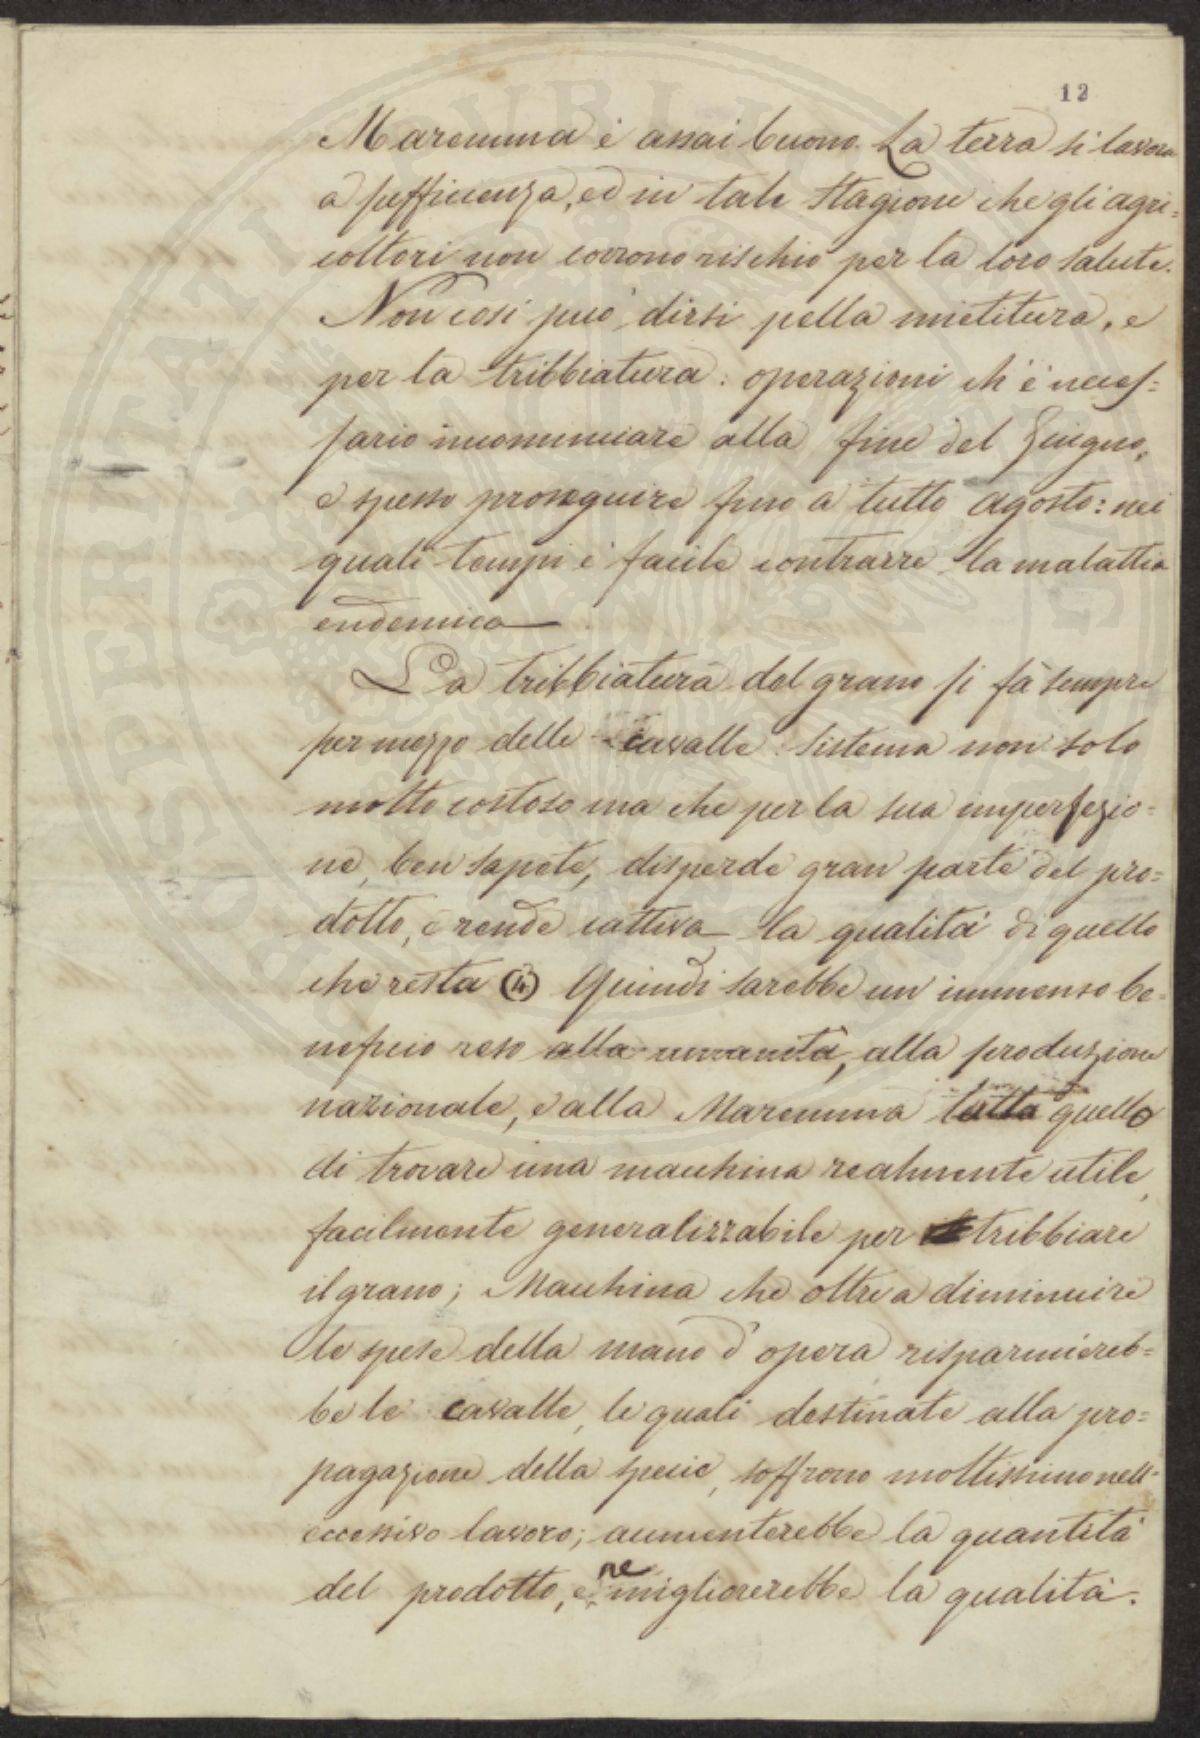 12
Maremma è assai buono. La terra si lavora
a sufficienza, ed in tale stagione che gli agri=
coltori non corrono rischio per la loro salute.
Non così può dirsi pella mietitura, e
per la tribbiatura: operazioni ch'è neces=
sario incominciare alla fine del Giugno,
e spesso proseguire fino a tutto Agosto: nei
quali tempi è facile contrarre la malattia
endemica
La tribbiatura del grano si fà sempre
per mezzo delle cavalle: sistema non solo
molto costoso ma che per la sua imperfezio=
ne, ben sapete, disperde gran parte del pro=
dotto, e rende cattiva la qualità di quello
che resta (4) Quindi sarebbe un immenso be=
neficio reso alla umanità, alla produzione
nazionale, e alla Maremma tutta quello
di trovare una macchina realmente utile,
facilmente generalizzabile per tribbiare
il grano; Macchina che oltre a diminuire
le spese della mano d'opera risparmiereb=
be le cavalle, le quali destinate alla pro=
pagazione della specie, soffrono moltissimo nell'
eccessivo lavoro; aumenterebbe la quantità
del prodotto, e ne migliorerebbe la qualità.